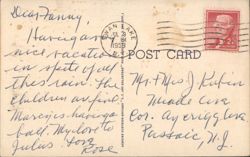 Dear Fanny,
Having a
nice vacation
in spite of all
this rain. The
children are fine
Marcy is having a
ball. My love to
Julius. Love
Rose
SWAN LAKE
N.Y.
POST CARD
Mr. & Mrs. J. Rubin
Meade Ave
Cor.
Passaic, N.J.